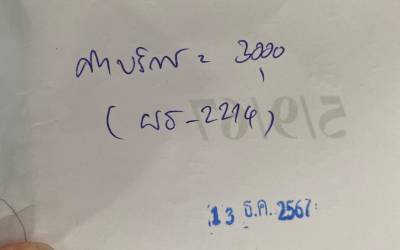 ค่าบริการ = 3000
(ผธ-2214)
13 ธ.ค. 2567